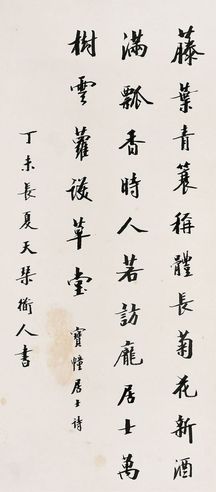 藤葉青蓑稱體長菊花新酒
滿瓢香時人若訪龐居士萬
樹雲蘿護草堂
寶幢居士詩
丁未長夏天琴衜人書